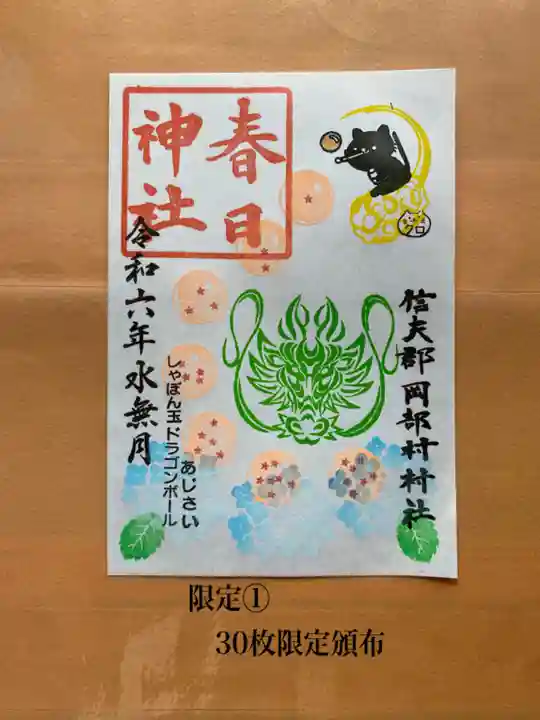 春日
神社
信夫郡岡部村村社
あじさい
しゃぼん玉ドラゴンボール
令和六年水無月
クロ
限定①
30枚限定頒布